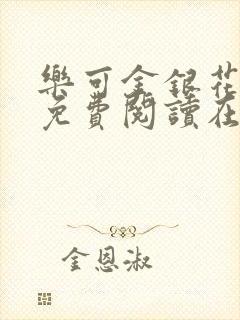 樂可金銀花
免費閱讀在
金恩淑